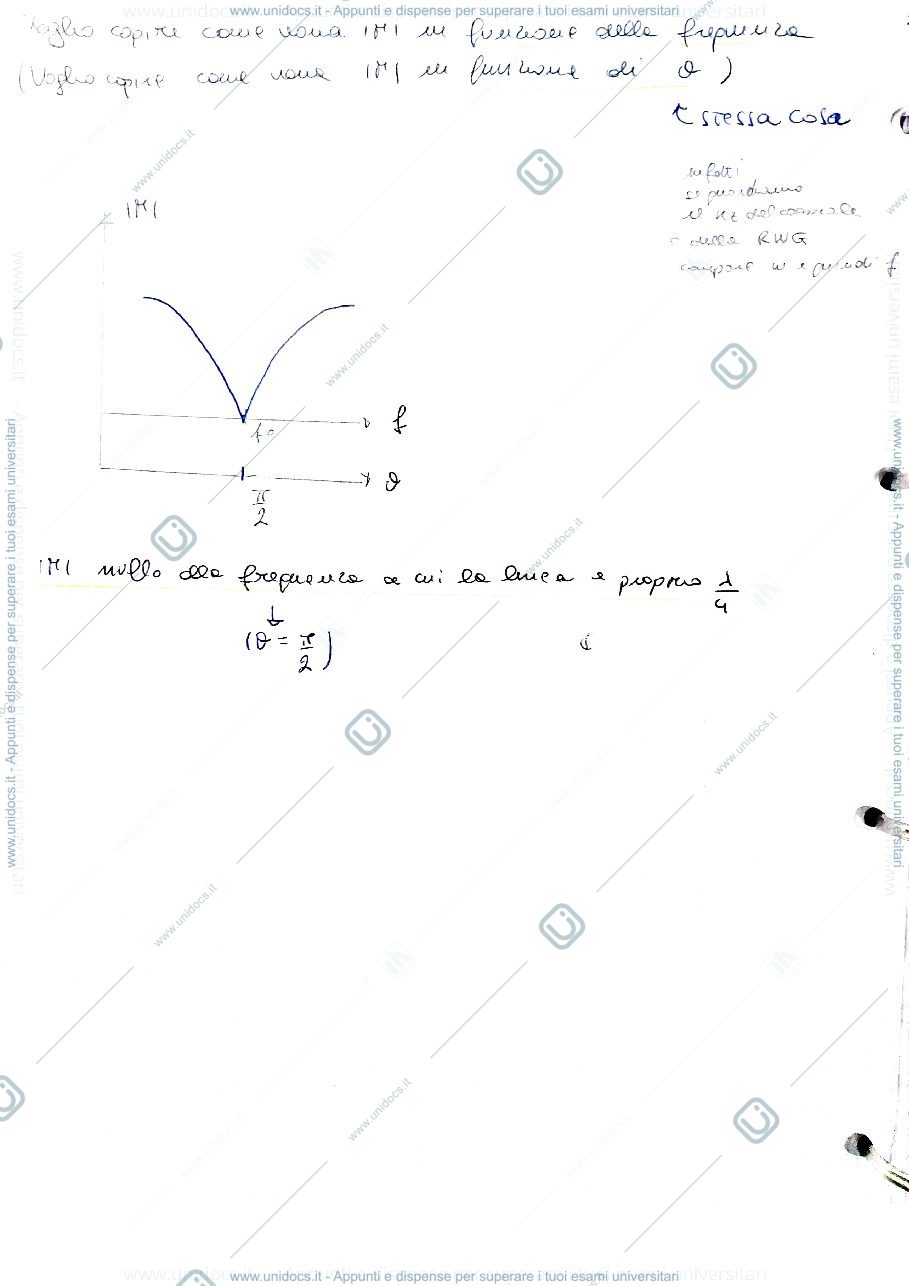 www.unidocs.it - Appunti e dispense per superare i tuoi esami universitari
Voglio capire come varia |M| in funzione della frequenza
(Voglio capire come varia |M| in funzione di θ)
↑ stessa cosa
infatti
se guardiamo
il kz del coassiale
o della RWG
compare w e quindi f
|M|
f0
f
θ
π/2
|M| nullo alla frequenza a cui la linea è proprio λ/4
↓
(θ = π/2)
www.unidocs.it - Appunti e dispense per superare i tuoi esami universitari
www.unidocs.it - Appunti e dispense per superare i tuoi esami universitari
www.unidocs.it
www.unidocs.it
www.unidocs.it
www.unidocs.it
www.unidocs.it
www.unidocs.it
www.unidocs.it - Appunti e dispense per superare i tuoi esami universitari